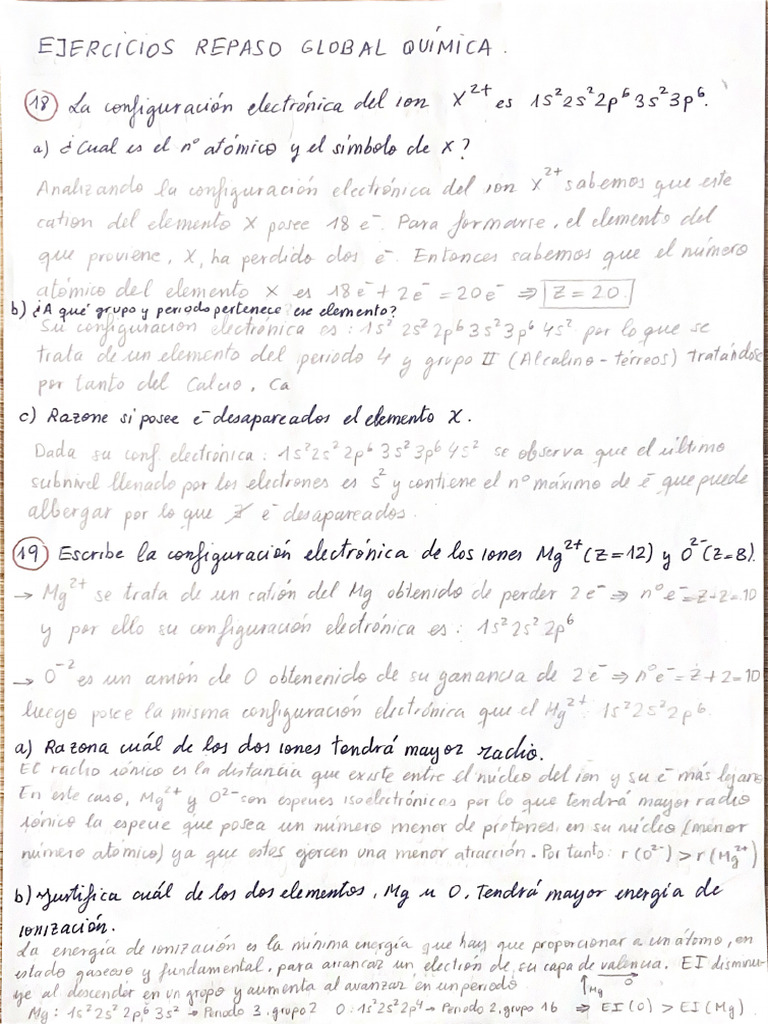 EJERCICIOS REPASO GLOBAL QUÍMICA.
18 La configuración electrónica del ion X²⁺ es 1s² 2s² 2p⁶ 3s² 3p⁶.
a) ¿Cual es el nº atómico y el símbolo de X?
Analizando la configuración electrónica del ion X²⁺ sabemos que este
cation del elemento X posee 18 e⁻. Para formarse, el elemento del
que proviene, X, ha perdido dos e⁻. Entonces sabemos que el número
atómico del elemento X es 18e⁻ + 2e⁻ = 20e⁻ ⇒ Z = 20.
b) ¿A qué grupo y periodo pertenece ese elemento?
Su configuración electrónica es: 1s² 2s² 2p⁶ 3s² 3p⁶ 4s² por lo que se
trata de un elemento del periodo 4 y grupo II (Alcalino-térreos) tratándose
por tanto del Calcio, Ca
c) Razone si posee e⁻ desapareados el elemento X.
Dada su conf. electrónica: 1s² 2s² 2p⁶ 3s² 3p⁶ 4s² se observa que el último
subnivel llenado por los electrones es s² y contiene el nº máximo de e⁻ que puede
albergar por lo que ∄ e⁻ desapareados.
19 Escribe la configuración electrónica de los iones Mg²⁺ (Z=12) y O²⁻ (Z=8).
→ Mg²⁺ se trata de un catión del Mg obtenido de perder 2e⁻ ⇒ nº e⁻ = Z-2 = 10
y por ello su configuración electrónica es: 1s² 2s² 2p⁶
→ O⁻² es un anión de O obtenenido de su ganancia de 2e⁻ ⇒ nº e⁻ = Z+2 = 10
luego posee la misma configuración electrónica que el Mg²⁺: 1s² 2s² 2p⁶.
a) Razona cuál de los dos iones tendrá mayor radio.
El radio iónico es la distancia que existe entre el núcleo del ion y su e⁻ más lejano
En este caso, Mg²⁺ y O²⁻ son especies isoelectrónicas por lo que tendrá mayor radio
iónico la especie que posea un número menor de protones en su núcleo (menor
número atómico) ya que estos ejercen una menor atracción. Por tanto: r(O²⁻) > r(Mg²⁺)
b) Justifica cuál de los dos elementos, Mg u O, tendrá mayor energía de
ionización.
La energía de ionización es la mínima energía que hay que proporcionar a un átomo, en
estado gaseoso y fundamental, para arrancar un electrón de su capa de valencia. EI disminu-
ye al descender en un grupo y aumenta al avanzar en un periodo ↑Mg → O
Mg: 1s² 2s² 2p⁶ 3s² → Periodo 3, grupo 2 O: 1s² 2s² 2p⁴ → Periodo 2, grupo 16 ⇒ EI(O) > EI(Mg)